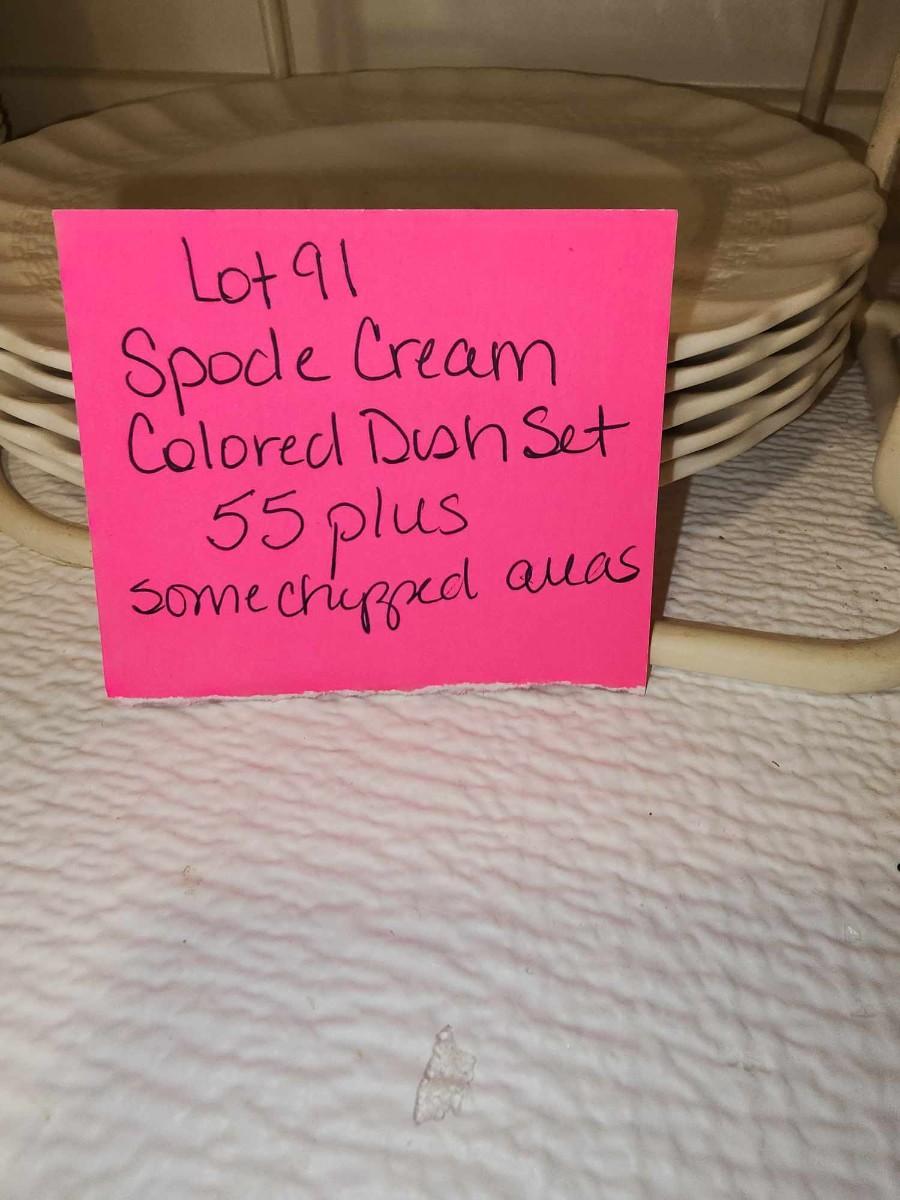 Lot 91
Spode Cream
Colored Dish Set
55 plus
some chipped areas